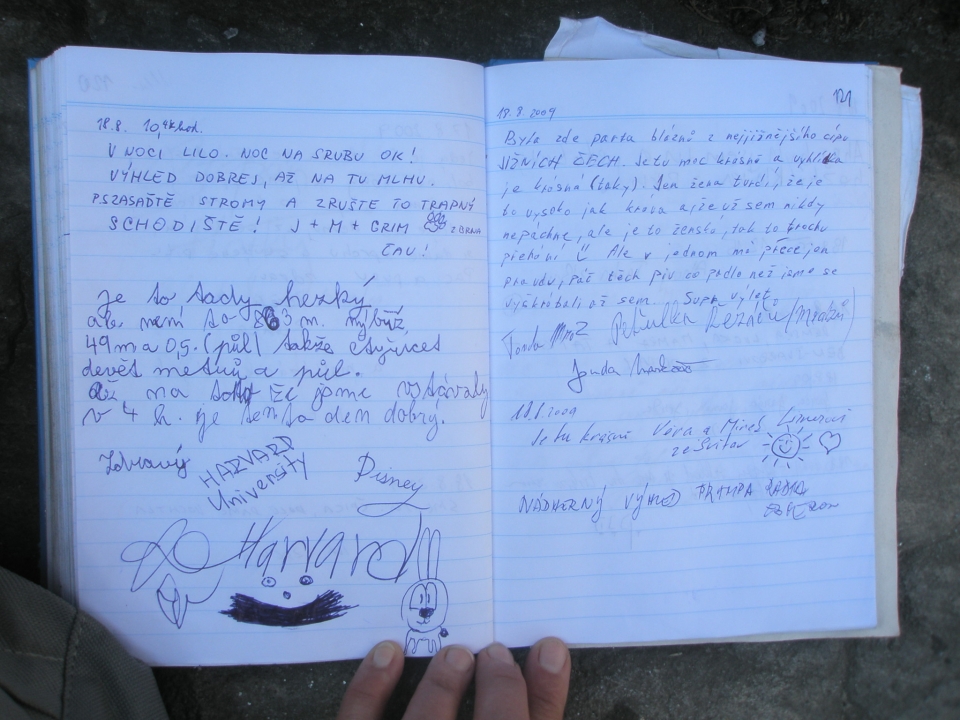 18.8. 10,44 hod.
V NOCI LILO. NOC NA SRUBU OK!
VÝHLED DOBREJ, AŽ NA TU MLHU.
PSZASAĎTĚ STROMY A ZRUŠTE TO TRAPNÝ
SCHODIŠTĚ! J + M + GRIM Z BRNA
ČAU!
je to tady hezký
ale není to 863 m. nýbrž
49 m a 0,5. (půl) takže čtyřicet
devět metrů a půl.
až na to že jsme vstávaly
v 4 h. je tento den dobrý.
Zdravý
HARVARD
University
Disney
Harvard
121
18.8.2009
Byla zde parta bláznů z nejjižnějšího cípu
JIŽNÍCH ČECH. Je tu moc krásně a vyhlídka
je krásná (taky). Jen žena tvrdí, že je
to vysoko jak kráva a že už sem nikdy
nepáchne, ale je to ženská, tak to trochu
přehání Ale v jednom má přece jen
pravdu, pát těch piv co padlo než jsme se
vyškrábali až sem. Supr výlet
Tonda Petulka
Jenda
2009
Je tu krásně Věra a Mireš
ze Svitav
NÁDHERNÝ VÝHLED